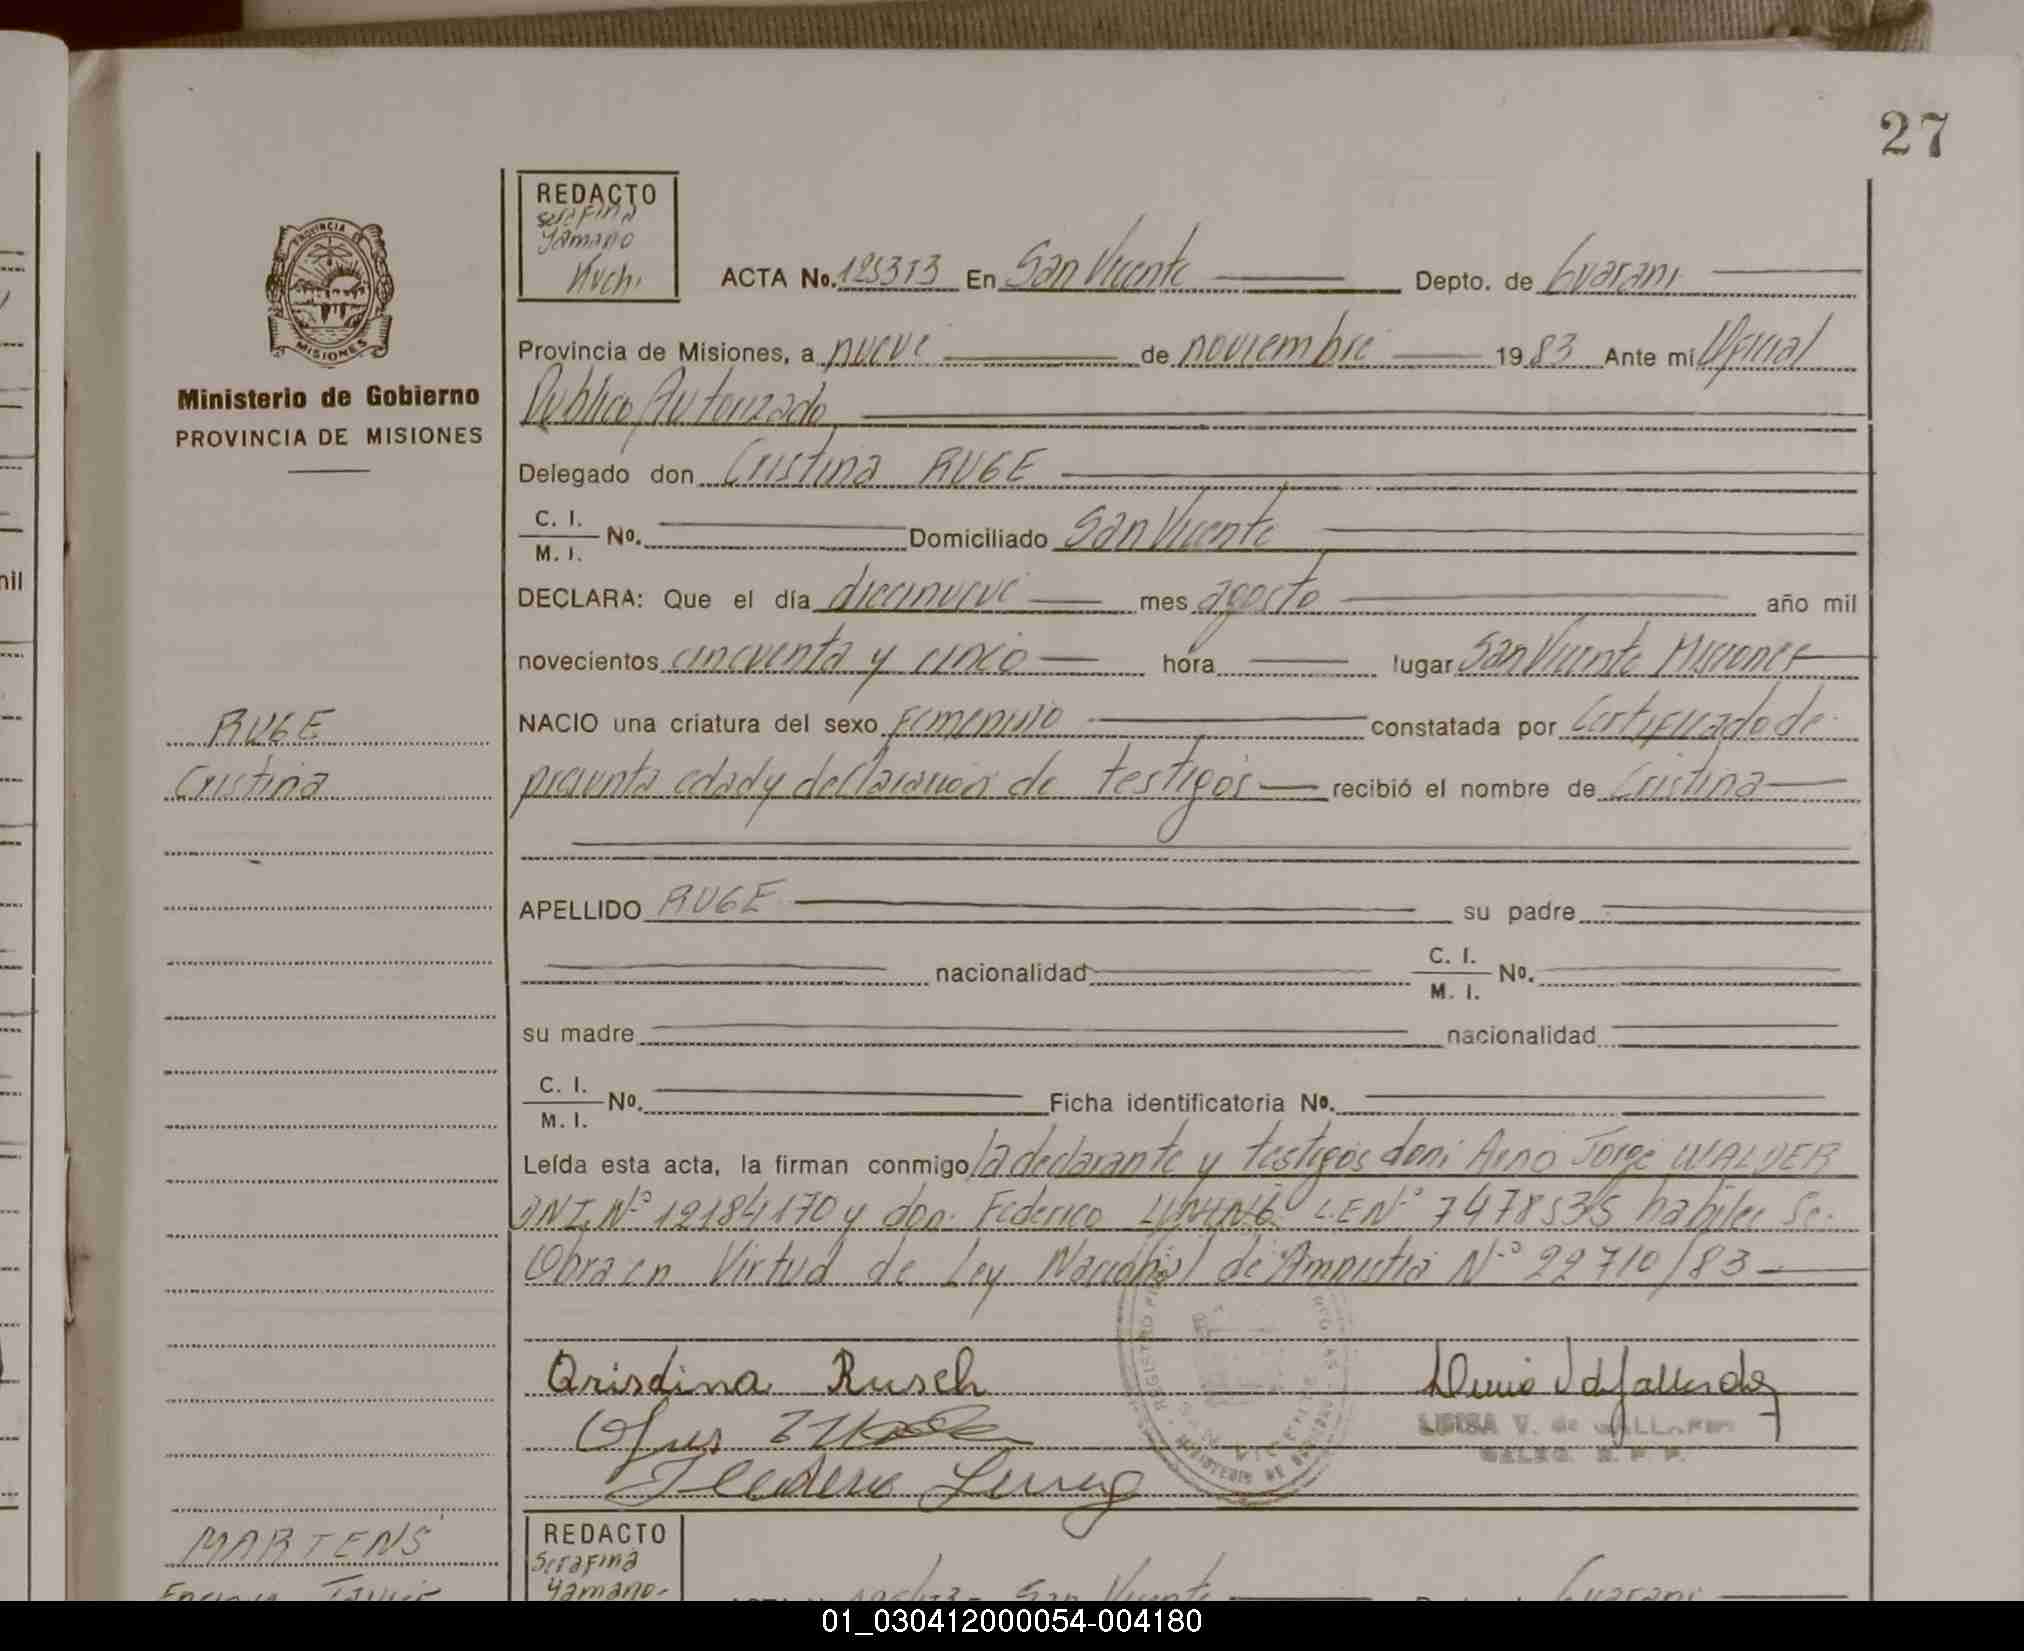 27
REDACTO
Serafina
Yamano
Kuch.
ACTA No. 125373 En San Vicente Depto. de Guarani
PROVINCIA DE
MISIONES
Ministerio de Gobierno
PROVINCIA DE MISIONES
Provincia de Misiones, a nueve de noviembre 1983 Ante mi Oficial
Publico Autorizado
Delegado don Cristina RUGE
C. I.
M. I. No. Domiciliado San Vicente
DECLARA: Que el día diecinueve mes agosto año mil
novecientos cincuenta y cinco hora lugar San Vicente Misiones
RUGE
Cristina
NACIO una criatura del sexo Femenino constatada por Certificado de
precunta edad y declaracion de testigos recibió el nombre de Cristina
APELLIDO RUGE su padre
nacionalidad C. I.
M. I. No.
su madre nacionalidad
C. I.
M. I. No. Ficha identificatoria No.
Leída esta acta, la firman conmigo la declarante y testigos don: Arno Jorge WALDER
DNI. Nº 12184170 y don. Federico LE Nº 7478535 habiles Se.
Obra en Virtud de Ley Nacional de Amnistia Nº 22710/83
Qrisdina Rusch
REGISTRO
MINISTERIO DE
LUISA V. de GALLARDO
MARTENS
REDACTO
Serafina
Yamano-
San Vicente
Guarani
01_030412000054-004180